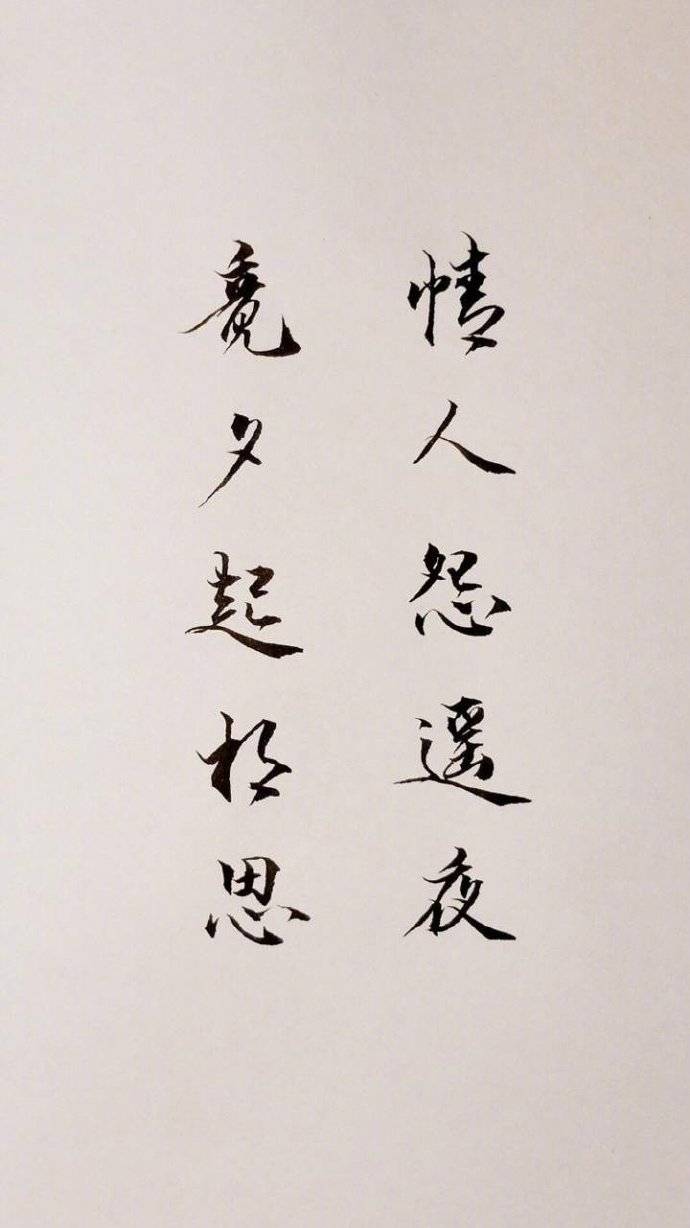 情人怨遥夜
竟夕起相思